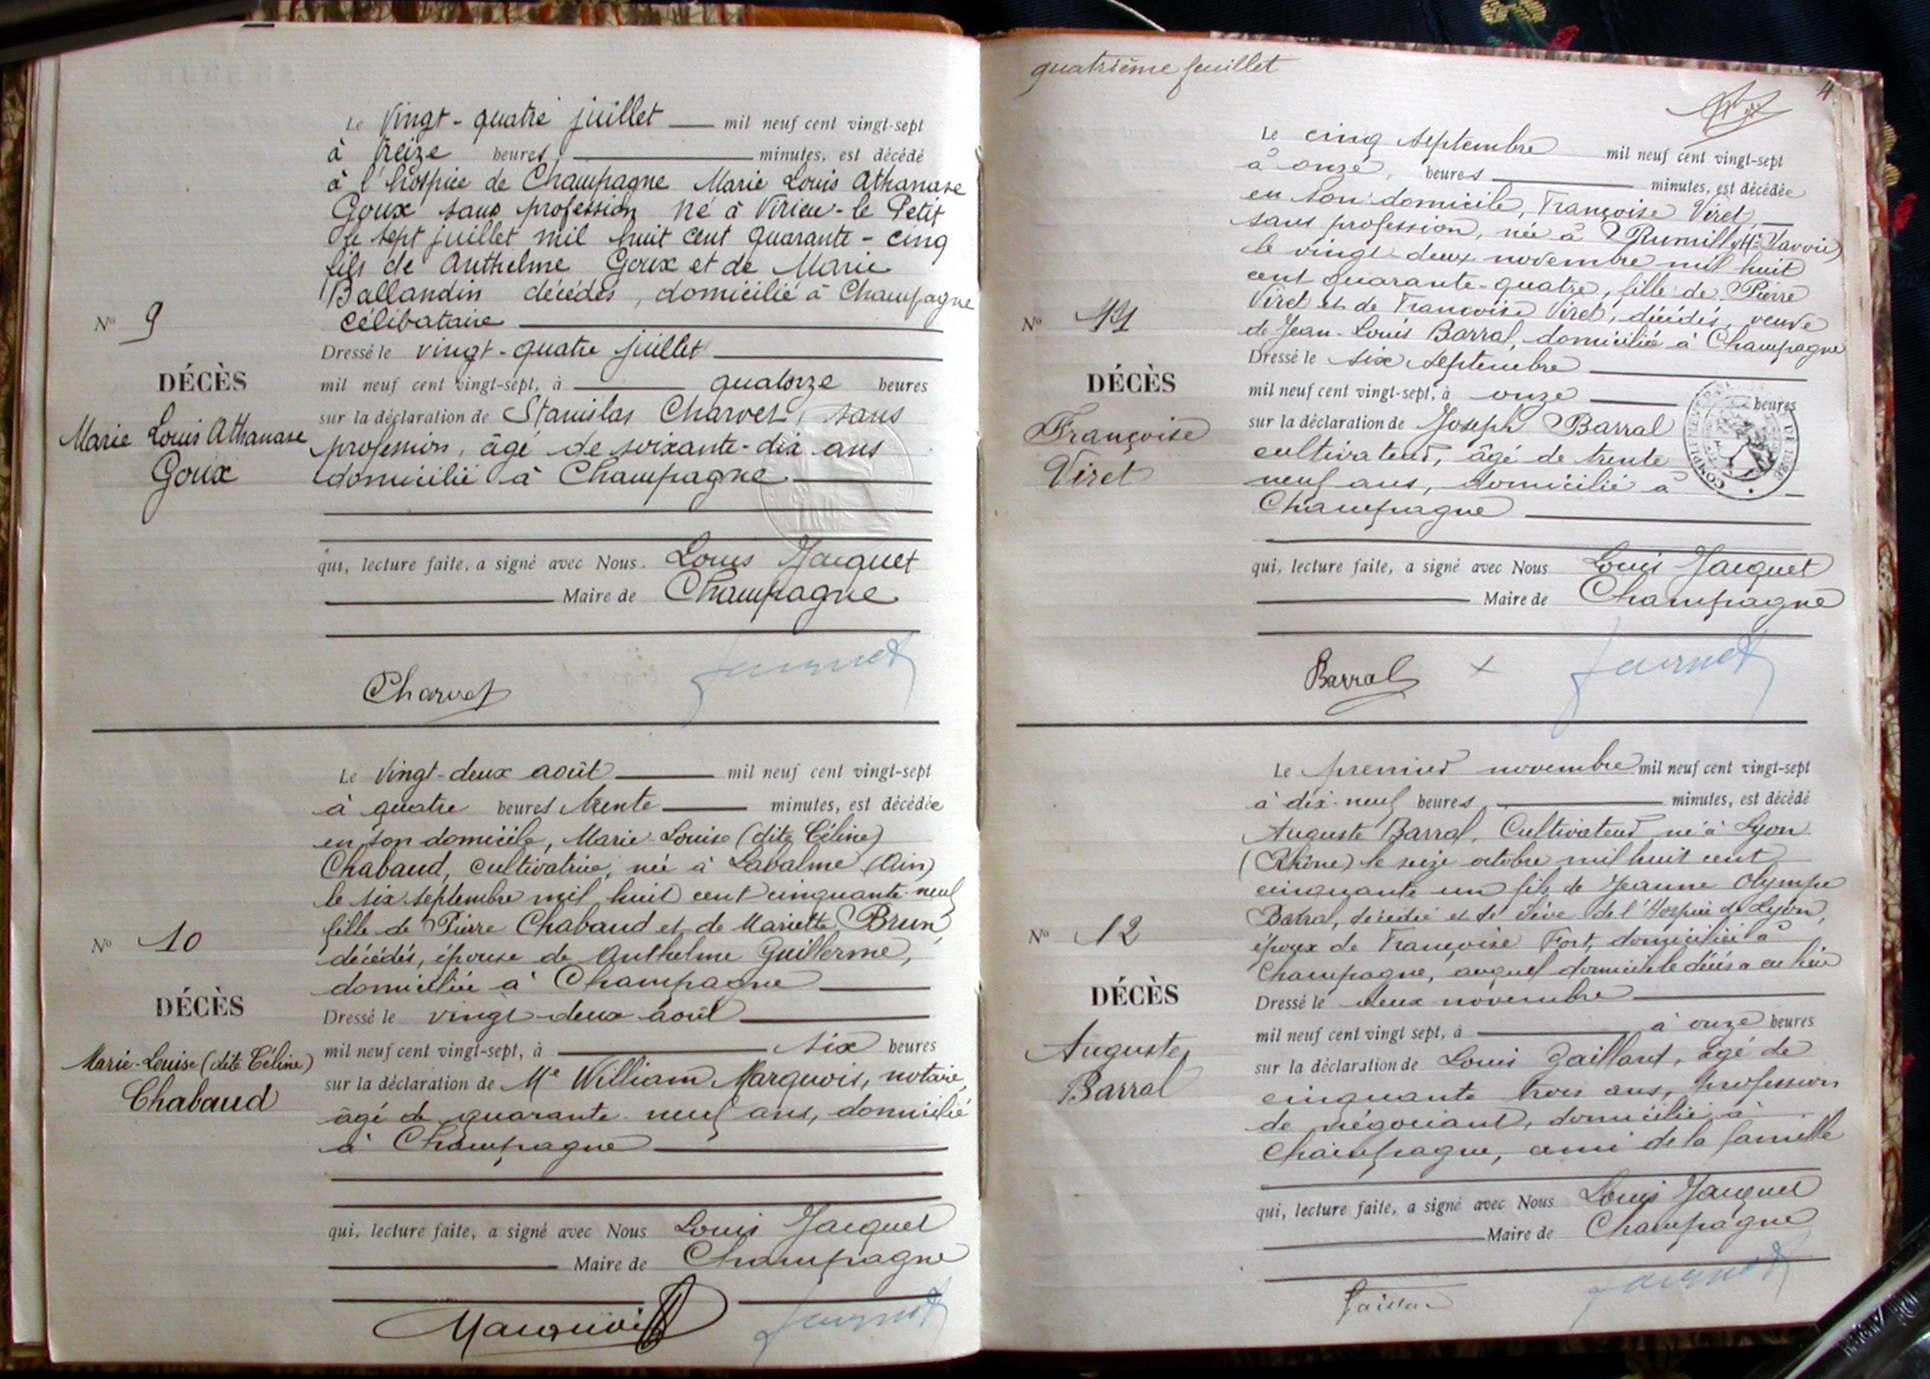 Le vingt-quatre juillet mil neuf cent vingt-sept
à treize heures, minutes, est décédé
à l'hospice de Champagne Marie Louis Athanase
Goux sans profession né à Virieu-le Petit
le sept juillet mil huit cent quarante-cinq
fils de Anthelme Goux et de Marie
Ballandin décédés, domicilié à Champagne
célibataire
Nº 9
Dressé le vingt-quatre juillet
DÉCÈS
mil neuf cent vingt-sept, à quatorze heures
sur la déclaration de Stanislas Charvet, sans
Marie Louis Athanase
Goux
profession, âgé de soixante-dix ans
domicilié à Champagne
qui, lecture faite, a signé avec Nous. Louis Jacquet
Maire de Champagne
Charvet
Le vingt-deux août mil neuf cent vingt-sept
à quatre heures trente minutes, est décédée
en son domicile, Marie-Louise (dite Céline)
Chabaud, cultivatrice, née à Labalme (Ain)
le six septembre mil huit cent cinquante-neuf
fille de Pierre Chabaud et de Mariette Brun,
décédés, épouse de Anthelme Guillerme,
domiciliée à Champagne
Nº 10
DÉCÈS
Dressé le vingt-deux août
Marie-Louise (dite Céline)
Chabaud
mil neuf cent vingt-sept, à six heures
sur la déclaration de Me William Marquois, notaire,
âgé de quarante-neuf ans, domicilié
à Champagne
qui, lecture faite, a signé avec Nous Louis Jacquet
Maire de Champagne
Marquois
quatrième feuillet
4
Le cinq septembre mil neuf cent vingt-sept
à onze, heures minutes, est décédée
en son domicile, Françoise Viret,
sans profession, née à Rumilly (Hte Savoie)
le vingt-deux novembre mil huit
cent quarante-quatre, fille de Pierre
Viret et de Françoise Viret, décédés, veuve
de Jean-Louis Barral, domiciliée à Champagne
Nº 11
DÉCÈS
Françoise
Viret
Dressé le six septembre
mil neuf cent vingt-sept, à onze heures
sur la déclaration de Joseph Barral
cultivateur, âgé de trente
neuf ans, domicilié à
Champagne
qui, lecture faite, a signé avec Nous Louis Jacquet
Maire de Champagne
Barral
Le premier novembre mil neuf cent vingt-sept
à dix-neuf heures minutes, est décédé
Auguste Barral, Cultivateur, né à Lyon
(Rhône) le seize octobre mil huit cent
cinquante un fils de Jeanne Olympe
Barral, décédée et élève de l'Hospice de Lyon,
époux de Françoise Fort, domicilié à
Champagne, auquel domicile le décès a eu lieu
Nº 12
DÉCÈS
Auguste
Barral
Dressé le deux novembre
mil neuf cent vingt sept, à à onze heures
sur la déclaration de Louis Gaillard, âgé de
cinquante trois ans, profession
de négociant, domicilié à
Champagne, ami de la famille
qui, lecture faite, a signé avec Nous Louis Jacquet
Maire de Champagne